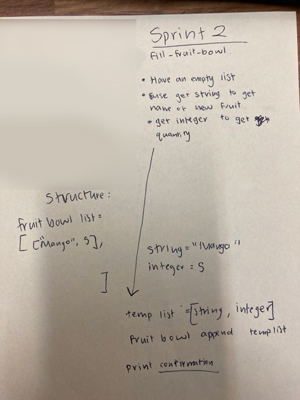 Sprint 2
Fill-fruit-bowl
• Have an empty list
• use get string to get
name of new fruit
• get integer to get
quantity
structure:
fruit bowl list =
[ ["Mango", 5],
]
string = "Mango"
integer = 5
temp list = [string, integer]
fruit bowl append temp list
print confirmation